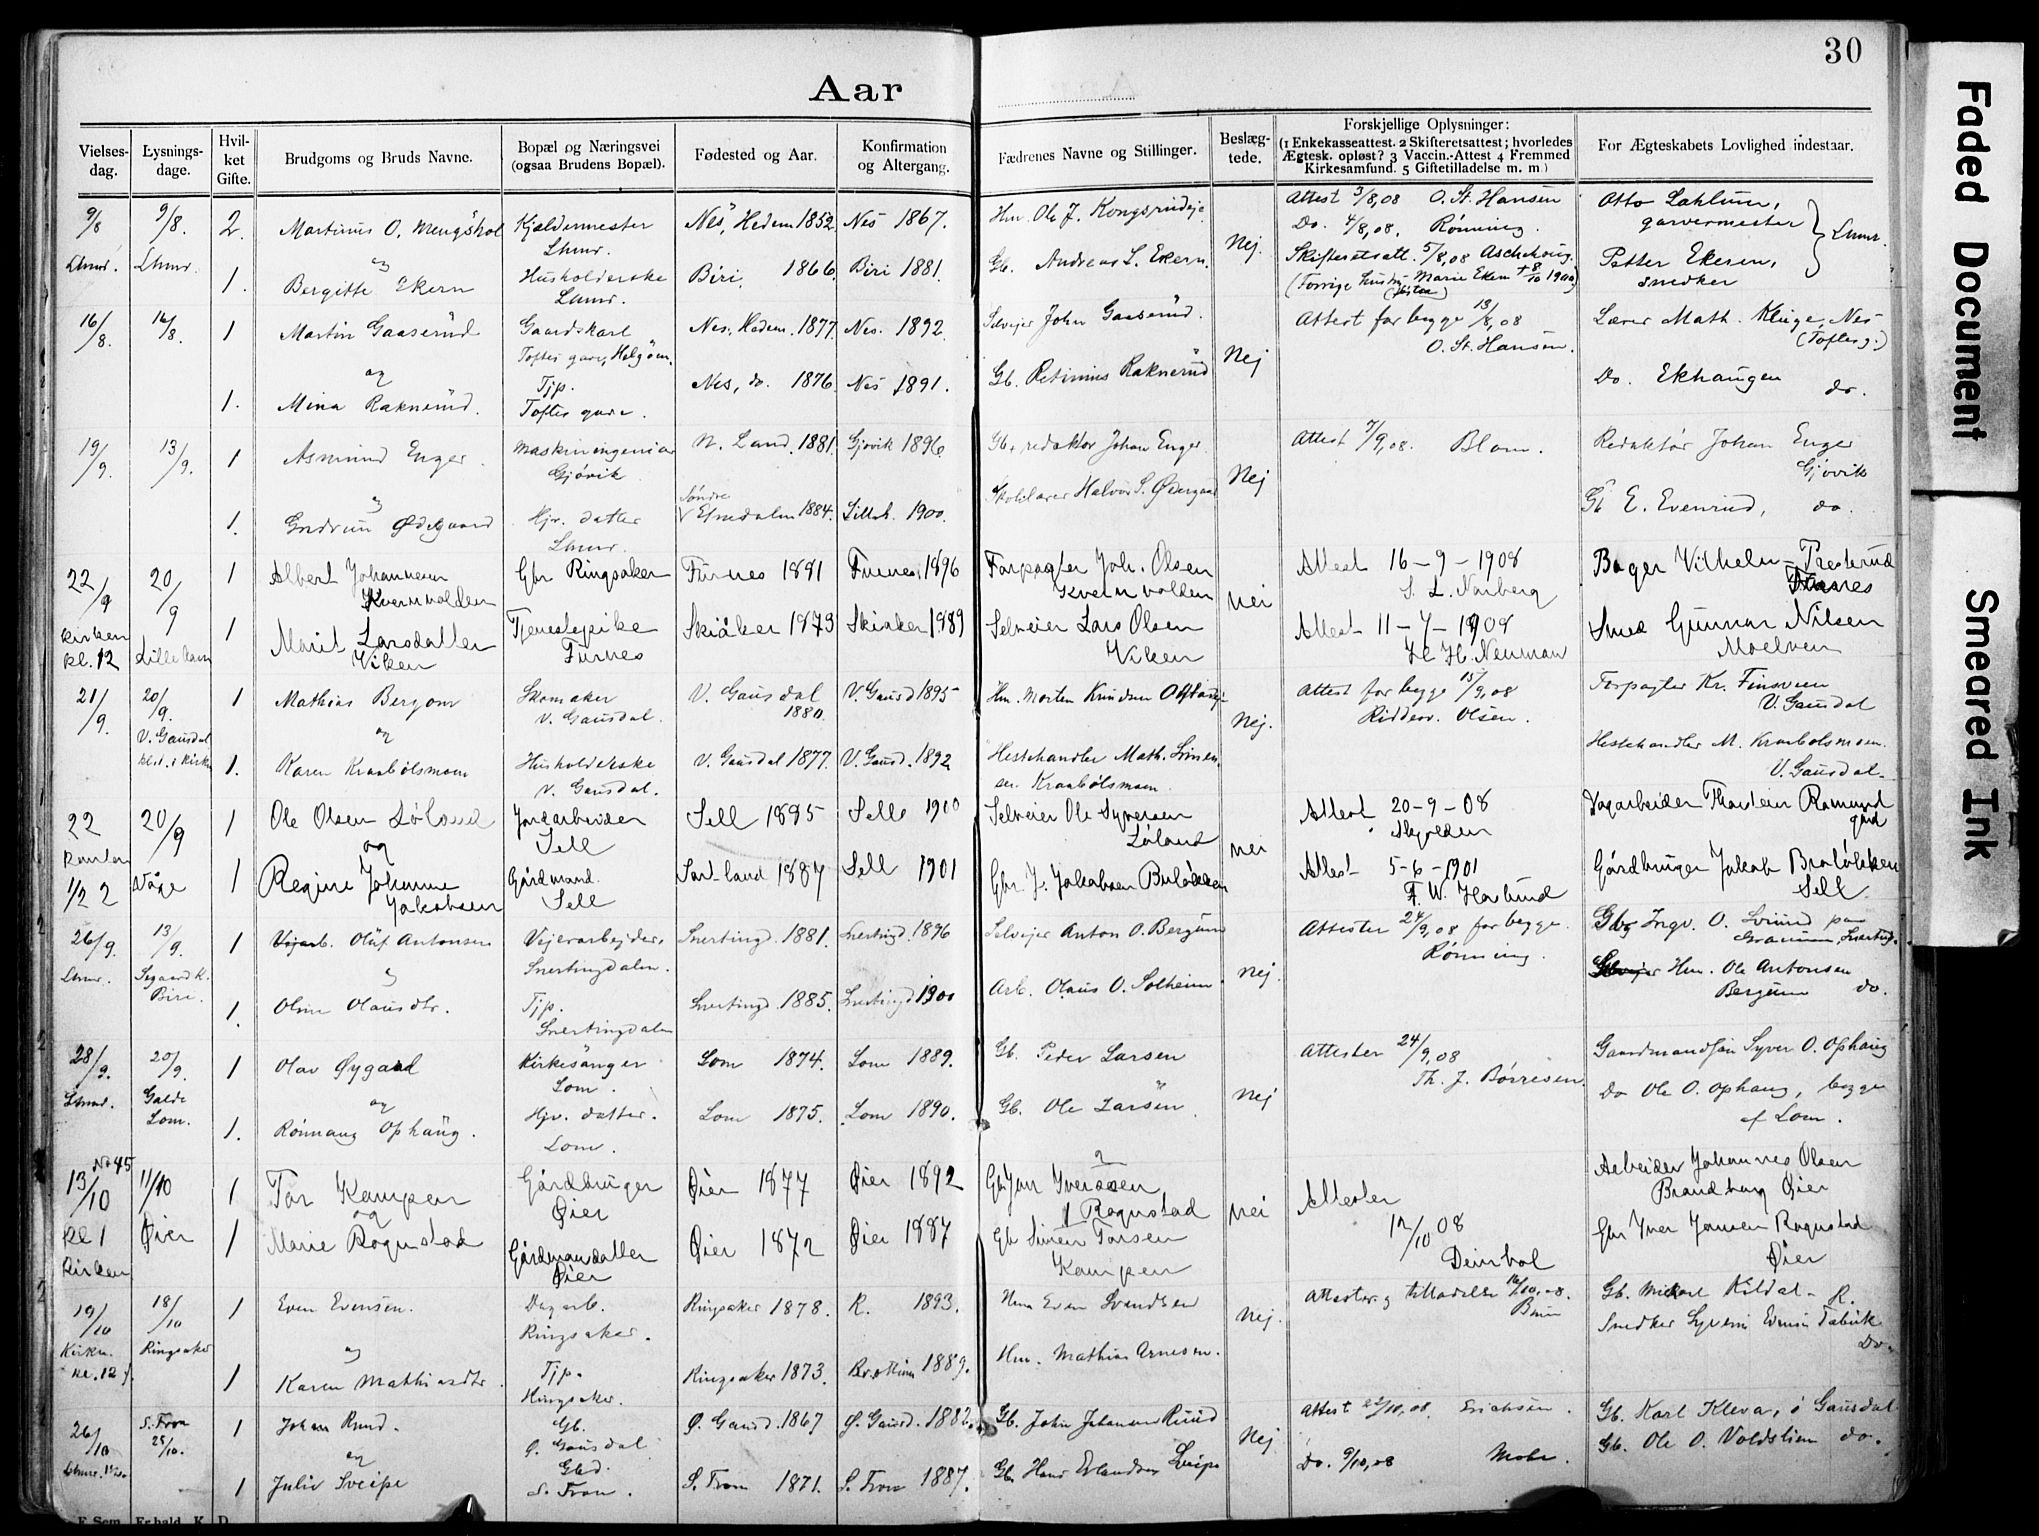 30
Aar
Vielses-dag.
Lysnings-dage.
Hvil-ket Gifte.
Brudgoms og Bruds Navne.
Bopæl og Næringsvei (ogsaa Brudens Bopæl).
Fødested og Aar.
Konfirmation og Altergang.
Fædrenes Navne og Stillinger.
Beslæg-tede.
Forskjellige Oplysninger: (1 Enkekasseattest. 2 Skifteretsattest; hvorledes Ægtesk. opløst? 3 Vaccin.-Attest 4 Fremmed Kirkesamfund. 5 Giftetilladelse m. m.)
For Ægteskabets Lovlighed indestaar.
9/8 9/8. 2. Martinus O. Mengshol Kjældermester Nes, Hedem 1852. Nes 1867. Hm. Ole J. Attest 3/8,08 O. St. Hansen Otto Sahlum, garvermester
Lhmr. Lhmr. og Lhmr. Nej. Do. 4/8,08. Rønning. Lhmr.
1. Bergitte Ekern Husholderske Biri, 1866. Biri 1881. Gb. Andreas L. Ekern. Skifteretsatt. 5/8,08 Aschehoug. Petter Ekeren,
Lhmr. (Forrige hustru Marie Ekern + 8/10 1900) snedker
16/8. 16/8. 1 Martin Gaaserud Gaardskarl Nes, Hedem. 1877. Nes. 1892. Selvejer John Gaaserud. Attest for begge 13/8,08 Lærer Math. Kluge, Nes
Toftes gave, Helgøen. Nej O. St. Hansen. (Toftes g.)
og Tjp. Nes, do. 1876. Nes 1891. Gb. Raknerud Do. Ekhaugen do.
1. Mina Raknerud. Toftes gave.
19/9. 13/9. 1 Asmund Enger. Maskiningeniør N. Land. 1881. Gjøvik 1896. Gb. + redaktør Johan Enger Attest 7/9,08. Blom. Redaktør Johan Enger
Gjøvik Nej Gjøvik
og Søndre Skolelærer Halvor S. Ødegaard Gb E. Evenrud, do.
1. Gudrun Ødegaard Hjv. datter Etnedalen 1884. Lilleh. 1900.
Lhmr.
22/9 20/9 1 Albert Johannesen Gbr Ringsaker Furnes 1881 Furnes 1896 Forpagter Joh. Olsen Attest 16-9-1908 Bager Vilhelm Presterud
Kvernvolden Kvernvolden nei S. L. Narberg Furnes
kirken kl. 12 Lilleham 1 Marit Larsdatter Tjenestepike Skiåker 1873 Skiaker 1889 Selveier Lars Olsen Attest 11-7-1908 Smed Gunnar Nilsen
Viken Furnes Viken H. H. Neuman Moelven
21/9. 20/9. 1 Mathias Bergom Skomaker V. Gausdal 1880. V. Gausd 1895 Hm. Morten Knudsen Attest for begge 15/9,08 Forpagter Kr. Finsveen
V. Gausdal og V. Gausdal. Nej. Ridderv. Olsen. V. Gausdal
1. Karen Kraabølsmoen Husholderske V. Gausdal 1877. V. Gausd. 1892 Hestehandler Math. Simen- Hestehandler M. Kraabølsmoen.
V. Gausdal. sen Kraabølsmoen. V. Gausdal.
22 20/9 1 Ole Olsen Løland Jordarbeider Sell 1885 Sell 1900 Selveier Ole Syversen Attest 20-9-08 Vegarbeider Thorstein Ramund
og Sell Løland nei gard
1/2 2 Våge 1 Regine Johanne Gårdmand. Sort-land 1887 Sell 1901 Gbr J. Jakobsen Attest 5-6-1901 Gårdbruger Jakob
Jakobsen Sell F. W. Sell
26/9. 13/9. 1 Vejarb. Oluf Antonsen Vejerarbejder, Snertingd. 1881. Snertingd. 1896 Selvejer Anton O. Bergum Attester 24/9,08 for begge. Gbr Ingv. O. paa
Lhmr. Biri. og Snertingdalen. nej. Rønning.
1. Oline Olausdtr. Tjp. Snertingd. 1885. Snertingd 1900 Arb. Olaus O. Solheim Hm. Ole Antonsen
Snertingdalen Bergum do.
28/9. 20/9. 1 Olav Øygard Kirkesanger Lom 1874. Lom 1889. Gb. Peder Larsen Attester 24/9,08 Gaardmandsøn Syver O. Ophaug
Lhmr. Galde Lom. og Lom. nej Th. J. Børresen. Do Ole O. Ophaug, begge
1. Rønnaug Ophaug. Hjv. datter. Lom 1875. Lom 1890. Gb. Ole Larsen. af Lom.
Lom.
No 45
13/10 11/10 1 Tor Kampen Gårdbruger Øier 1877 Øier 1892 Iversen Attester Arbeider Johannes Olsen
og Øier Rognstad nei 12/10 08 Brandhaug Øier
kl 1 Øier 1 Marie Rognstad Gårdmandsdatter Øier 1872 Øier 1887 Gbr Simen Torsen Gbr Iver Jonsen Rognstad
kirken Øier Kampen Deinbol Øier
19/10 18/10 1 Even Evensen. Dagarb. Ringsaker 1878. R. 1893. Hm Even Svendsen Attester og tilladelse 16/10,08. Gb. Mikael Kildal R.
Kirken kl. 12 Ringsaker og Ringsaker. Nej. Snedker Evensen Fabrik
1 Karen Mathiasdtr Tjp. Ringsaker 1873. Brøttum 1889. Hm. Mathias Arnesen. Do.
Ringsaker.
26/10 S. Fron 25/10. 1 Johan Ruud. Gb. Ø. Gausd. 1867 Ø. Gausd. 1882. Gb. John Johannes Ruud Attest 22/10,08. Erichsen. Gb. Karl Kleva, Ø Gausdal
Lhmr. og Ø. Gausdal Nej. Gb. Ole O. Voldslien do.
1 Julie Sveipe Gbd. S. Fron 1871. S. Fron 1887. Gb. Hans Erlandsen Sveipe Do. 9/10,08 Mohr.
S. Fron.
Faded Document
Smeared Ink